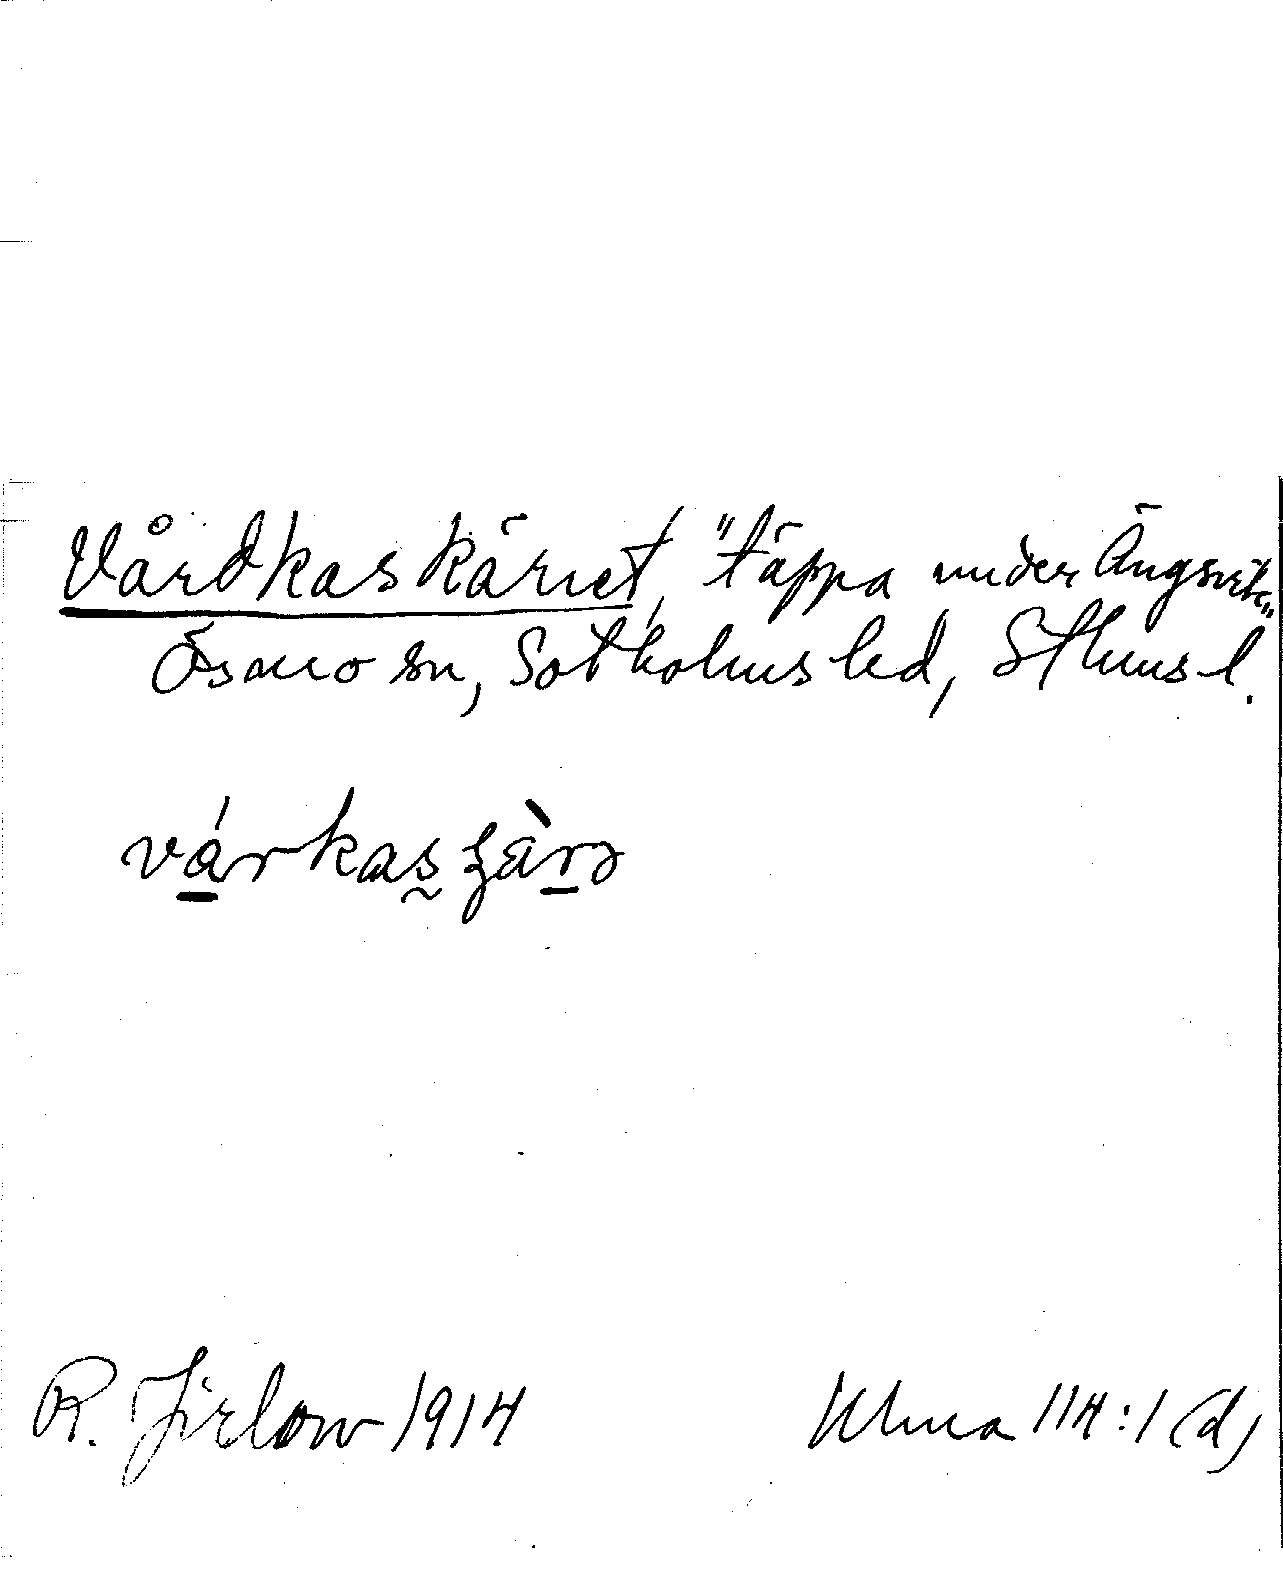 Vårdkaskärret, "täppa under Ängsvik"
Ösmo sn, Sotholms hd, Sthms l.
várkasʂäↄ̀
R. Jirlow 1914
Ulma 114:1 (d)